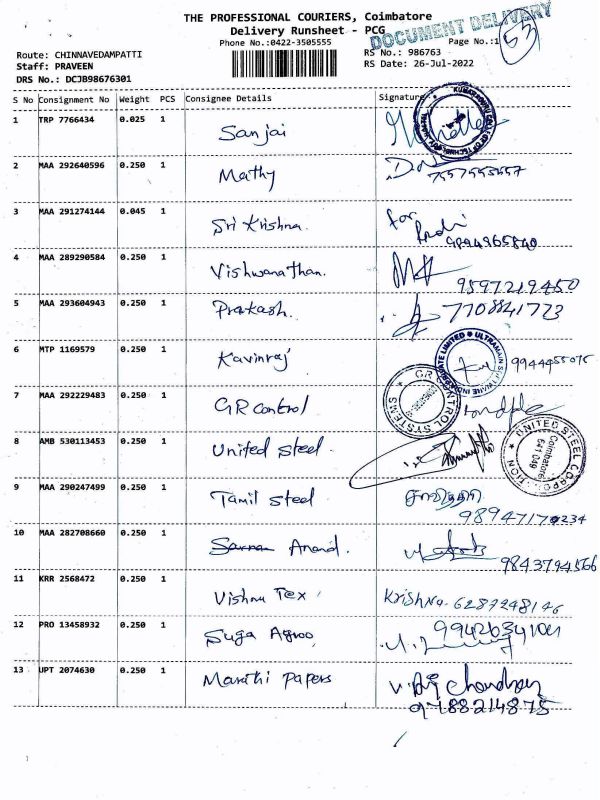 THE PROFESSIONAL COURIERS, Coimbatore
Delivery Runsheet - PCG
DOCUMENT DELIVERY
53
Phone No.:0422-3505555
Page No.:1
Route: CHINNAVEDAMPATTI
RS No.: 986763
Staff: PRAVEEN
RS Date: 26-Jul-2022
DRS No.: DCJB98676301
S No Consignment No Weight PCS Consignee Details Signature
1 TRP 7766434 0.025 1 Sanjai
2 MAA 292640596 0.250 1 Mathy
3 MAA 291274144 0.045 1 Sri Krishna. for
9894965840
4 MAA 289290584 0.250 1 Vishwanathan.
9597219450
5 MAA 293604943 0.250 1 Prakash. 7708841773
6 MTP 1169579 0.250 1 Kavinraj 9944455075
7 MAA 292229483 0.250 1 GR control
GR CONTROL SYSTEMS
8 AMB 530113453 0.250 1 United Steel.
UNITED STEEL CORPORATION
Coimbatore
641 049
9 MAA 290247499 0.250 1 Tamil Steel
98947170234
10 MAA 282708660 0.250 1 Anand.
9843794566
11 KRR 2568472 0.250 1 Vishnu Tex Krishna. 6287248146
12 PRO 13458932 0.250 1 Suga Agroo
13 UPT 2074630 0.250 1 Maruthi Papers
9788214875